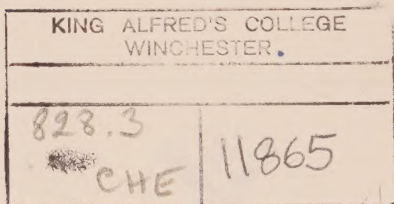 KING ALFRED'S COLLEGE
WINCHESTER.
828.3
CHE
11865